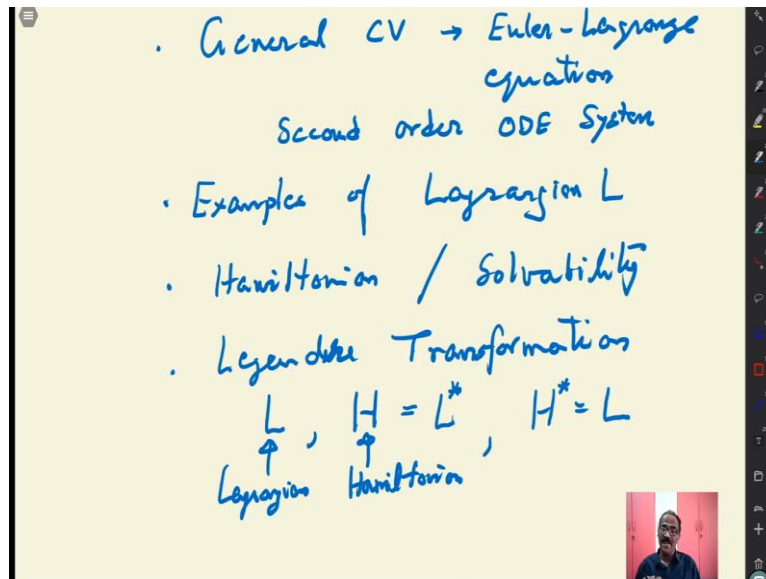 · General CV → Euler-Lagrange
equation
Second order ODE System
· Examples of Lagrangion L
· Hamiltonian / Solvability
· Legendre Transformation
L , H = L* , H* = L
↑ ↑
Lagrangian Hamiltonian